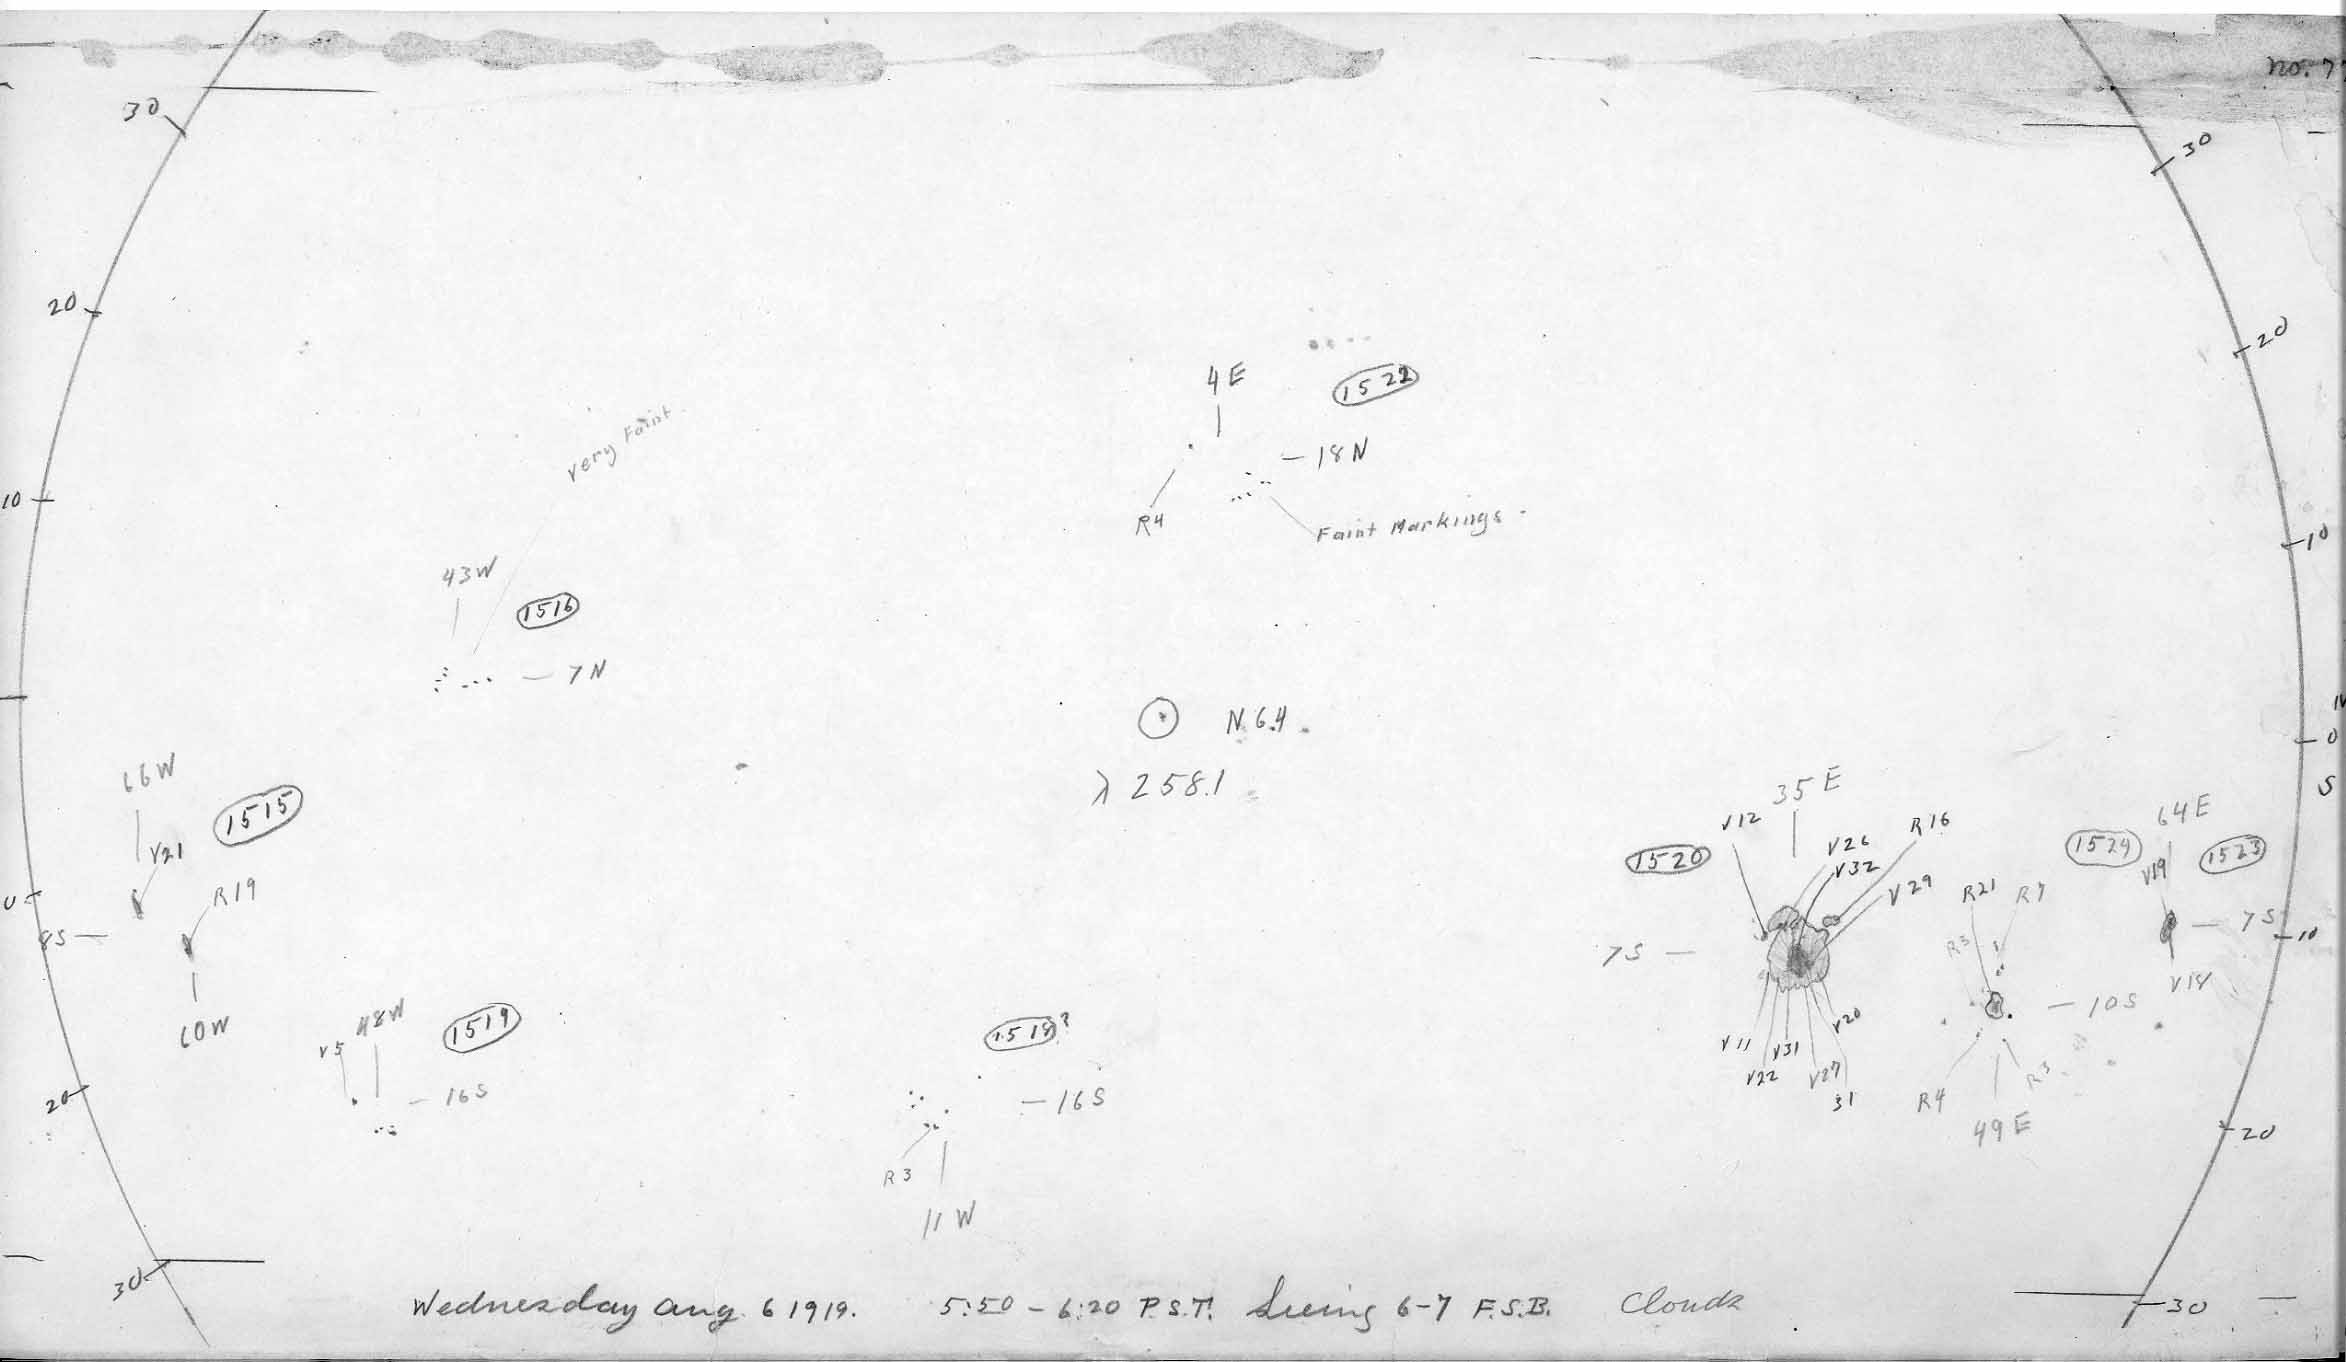 30
20
10
30
20
10
N
0
S
10
20
30
0
20
30
4E
1522
18N
R4
Faint Markings
very Faint
43W
1516
7N
N 6.4
λ 258.1
66W
1515
V21
R19
8S
60W
48W
V5
1519
16S
1518?
16S
R3
11W
35E
V12
1520
V26
V32
R16
V29
7S
V11
V22
V31
V27
31
V20
R21
R7
R3
10S
R4
R3
49E
1524
64E
1523
V19
7S
V18
Wednesday Aug. 6 1919. 5:50 - 6:20 P.S.T. Seeing 6-7 F.S.B. Clouds